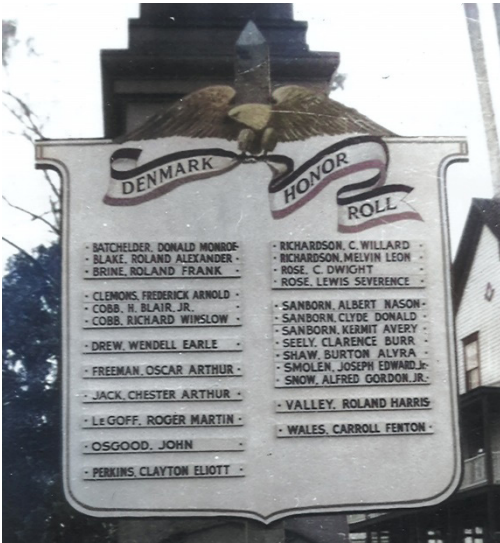 DENMARK
HONOR
ROLL
· BATCHELDER, DONALD MONROE·
· BLAKE, ROLAND ALEXANDER ·
· BRINE, ROLAND FRANK ·
· CLEMONS, FREDERICK ARNOLD ·
· COBB, H. BLAIR, JR. ·
· COBB, RICHARD WINSLOW ·
· DREW, WENDELL EARLE ·
· FREEMAN, OSCAR ARTHUR ·
· JACK, CHESTER ARTHUR ·
· LeGOFF, ROGER MARTIN ·
· OSGOOD, JOHN ·
· PERKINS, CLAYTON ELIOTT ·
· RICHARDSON, C. WILLARD ·
· RICHARDSON, MELVIN LEON ·
· ROSE, C. DWIGHT ·
· ROSE, LEWIS SEVERENCE ·
· SANBORN, ALBERT NASON ·
· SANBORN, CLYDE DONALD ·
· SANBORN, KERMIT AVERY ·
· SEELY, CLARENCE BURR ·
· SHAW, BURTON ALVRA ·
· SMOLEN, JOSEPH EDWARD, Jr. ·
· SNOW, ALFRED GORDON, JR. ·
· VALLEY, ROLAND HARRIS ·
· WALES, CARROLL FENTON ·